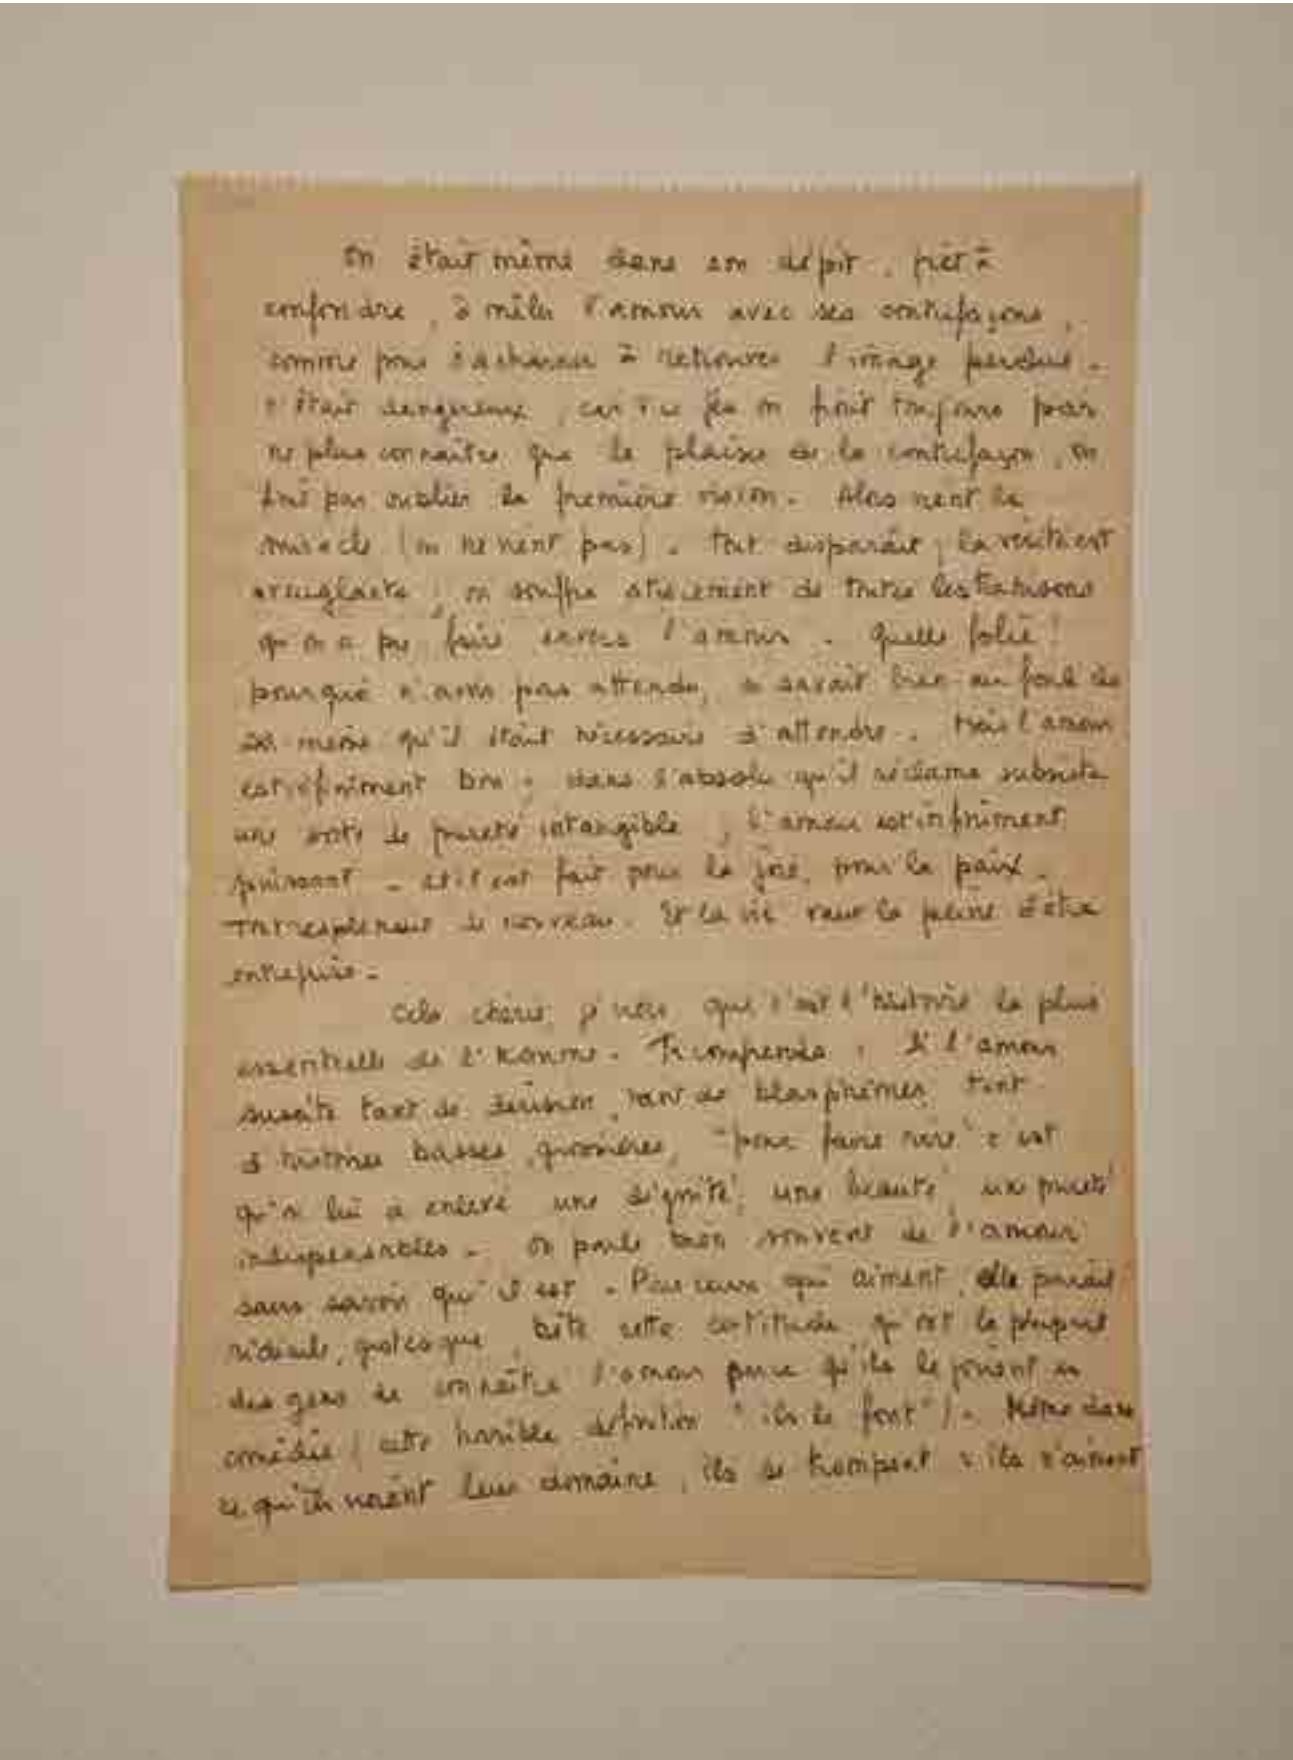 On était même dans son dépit, prêt à
confondre, à mêler l'amour avec ses contrefaçons,
comme pour s'acharner à retrouver l'image perdue.
C'était dangereux, car à ce jeu on finit toujours par
ne plus connaître que le plaisir de la contrefaçon, on
finit par oublier la première vision. Alors vient le
miracle (ou ne vient pas). Tout disparaît, la vérité est
aveuglante, on souffre atrocement de toutes les trahisons
qu'on a pu faire envers l'amour. Quelle folie!
pourquoi n'avoir pas attendu, on savait bien au fond de
soi même qu'il était nécessaire d'attendre. Mais l'amour
est infiniment bon; dans l'absolu qu'il réclame subsiste
une sorte de pureté intangible, l'amour est infiniment
puissant. et il est fait pour la joie, pour la paix.
Tout resplendit de nouveau. Et la vie vaut la peine d'être
entreprise.
Cela chérie, je crois que c'est l'histoire la plus
essentielle de l'homme. Tu comprends, si l'amour
suscite tant de dérision, tant de blasphèmes, tant
d'histoires basses, grossières, "pour faire rire" c'est
qu'on lui a enlevé une dignité, une beauté, une pureté
indispensables. On parle bien souvent de l'amour
sans savoir qu'il est. Pour ceux qui aiment, elle paraît
ridicule, grotesque, bête cette certitude qu'ont la plupart
des gens de connaître l'amour parce qu'ils le jouent en
comédie (cette horrible définition "ils le font"). Même dans
ce qu'ils croient leur domaine, ils se trompent: ils n'aiment